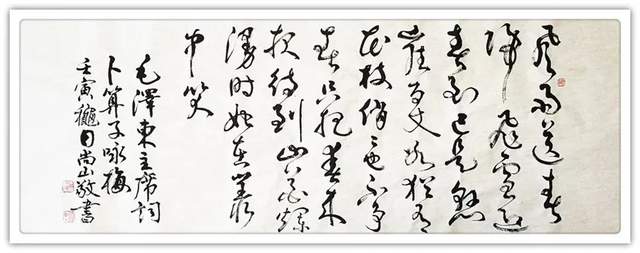 風雨送春
歸飛雪迎
春到已是懸
崖百丈冰猶有
花枝俏也不争
春只把春来
報待到山花爛
漫時她在叢
中笑
毛澤東主席詞
卜算子咏梅
壬寅穐日尚山敬書